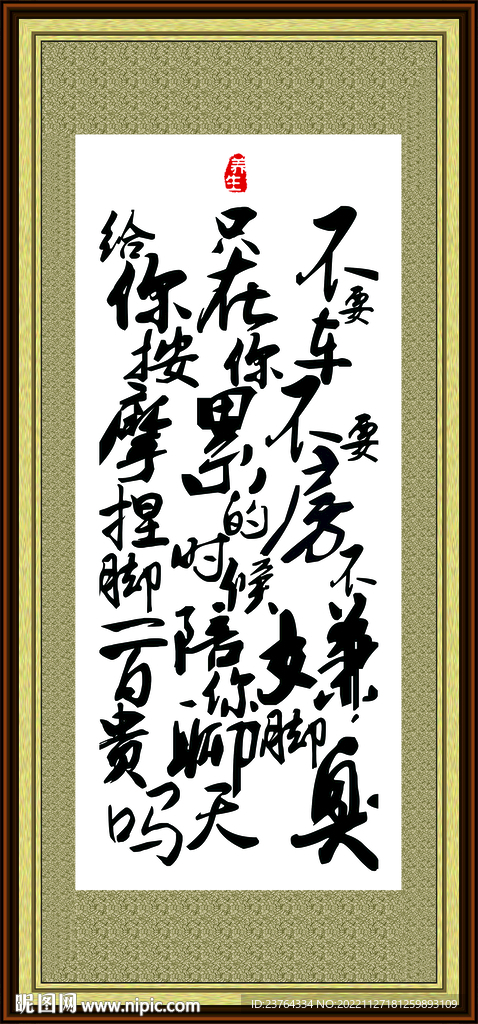 养生
不要车不要房不嫌脚臭
只在你累的时候陪你聊天
给你按摩捏脚一百贵吗
昵图网 www.nipic.com
ID:23764334 NO:20221127181259893109